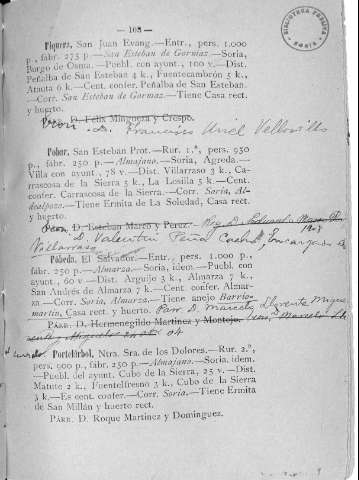 — 103 —
BIBLIOTECA PUBLICA
SORIA
Piquera, San Juan Evang.—Entr., pers. 1.000
p., fábr. 275 p.—San Esteban de Gormaz.—Soria,
Burgo de Osma.—Puebl. con ayunt., 100 v.—Dist.
Peñalba de San Esteban 4 k., Fuentecambrón 5 k.,
Atauta 6 k.—Cent. confer. Peñalba de San Esteban.
—Corr. San Esteban de Gormaz.—Tiene Casa rect.
y huerto.
D. Félix Mingueza y Crespo.
D. Francisco
Pobar, San Esteban Prot.—Rur. 1.ª, pers. 950
p., fábr. 250 p.—Almajano.—Soria, Agreda.—
Villa con ayunt., 78 v.—Dist. Villarraso 3 k., Ca-
rrascosa de la Sierra 5 k., La Losilla 5 k.—Cent.
confer. Carrascosa de la Sierra.—Corr. Soria, Al-
dealpozo.—Tiene Ermita de La Soledad, Casa rect.
y huerto.
D. Esteban Marco y Perez.
Villarraso D. Valentin Peña
Póveda, El Salvador.—Entr., pers. 1.000 p.,
fábr. 250 p.—Almarza.—Soria, idem.—Puebl. con
ayunt., 60 v—Dist. Arguijo 3 k., Almarza 7 k.,
San Andrés de Almarza 7 k.—Cent. confer. Almar-
za—Corr. Soria, Almarza.—Tiene anejo Barrio-
martin, Casa rect. y huerto. Parr. D. Marcelo Llorente
PÁRR. D. Hermenegildo Martínez y Montojo.
04
Portelrrbol, Ntra. Sra. de los Dolores.—Rur. 2.ª,
pers. 900 p., fábr. 250 p.—Almarza.—Soria, idem.
—Puebl. del ayunt. Cubo de la Sierra, 25 v.—Dist.
Matute 2 k., Fuentelfresno 3 k., Cubo de la Sierra
3 k.—Es cent. confer.—Corr. Soria.—Tiene Ermita
de San Millán y huerto rect.
PÁRR. D. Roque Martínez y Dominguez.